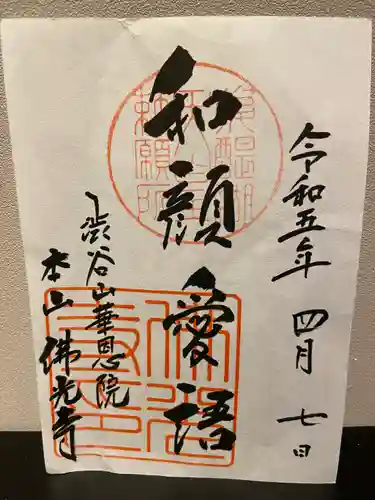 令和五年 四月 七日
和顔愛語
渋谷山華恩院
本山 佛光寺